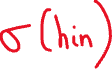 σ(hin)